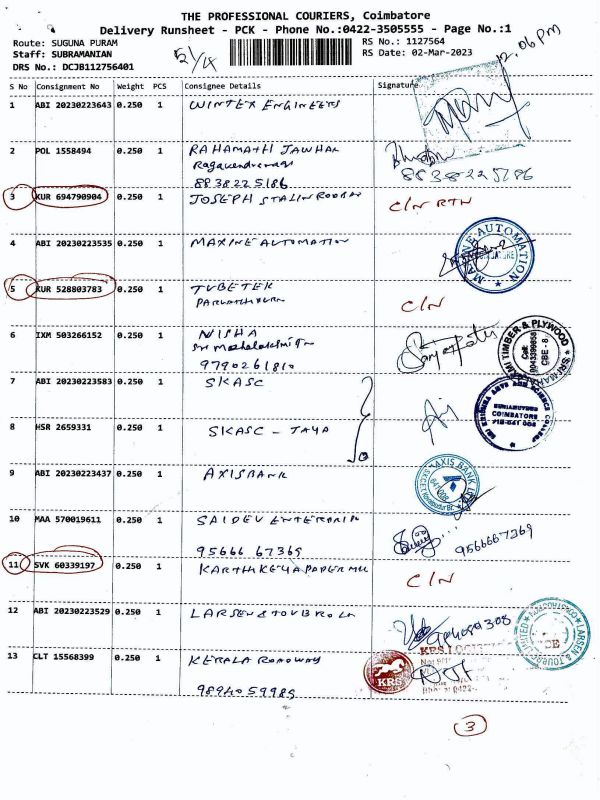 THE PROFESSIONAL COURIERS, Coimbatore
Delivery Runsheet - PCK - Phone No.:0422-3505555 - Page No.:1
Route: SUGUNA PURAM
Staff: SUBRAMANIAN
DRS No.: DCJB112756401
RS No.: 1127564
RS Date: 02-Mar-2023
12.06 PM
S No Consignment No Weight PCS Consignee Details Signature
1 ABI 20230223643 0.250 1 WINTEX ENGINEERS
2 POL 1558494 0.250 1 RAHAMATH JAWHAR
8838225186 8838225186
3 KUR 694790904 0.250 1 JOSEPH STALIN C/N RTN
4 ABI 20230223535 0.250 1 MAXINE AUTOMATION
MAXINE AUTOMATION
5 KUR 528803783 0.250 1 TUBETEK C/N
6 IXM 503266152 0.250 1 NISHA
Sri Mahalakshmi
9790261810
7 ABI 20230223583 0.250 1 SKASC
8 HSR 2659331 0.250 1 SKASC - TAYA
SRI KRISHNA ARTS AND SCIENCE COLLEGE
COIMBATORE
9 ABI 20230223437 0.250 1 AXIS BANK
AXIS BANK
10 MAA 570019611 0.250 1 SAIDEV ENTERPRIS
95666 67369 9566667369
11 SVK 60339197 0.250 1 C/N
12 ABI 20230223529 0.250 1 LARSEN & TOUBRO LN
LARSEN & TOUBRO LIMITED
13 CLT 15568399 0.250 1 KERALA ROADWAY
KRS
9894059985
3